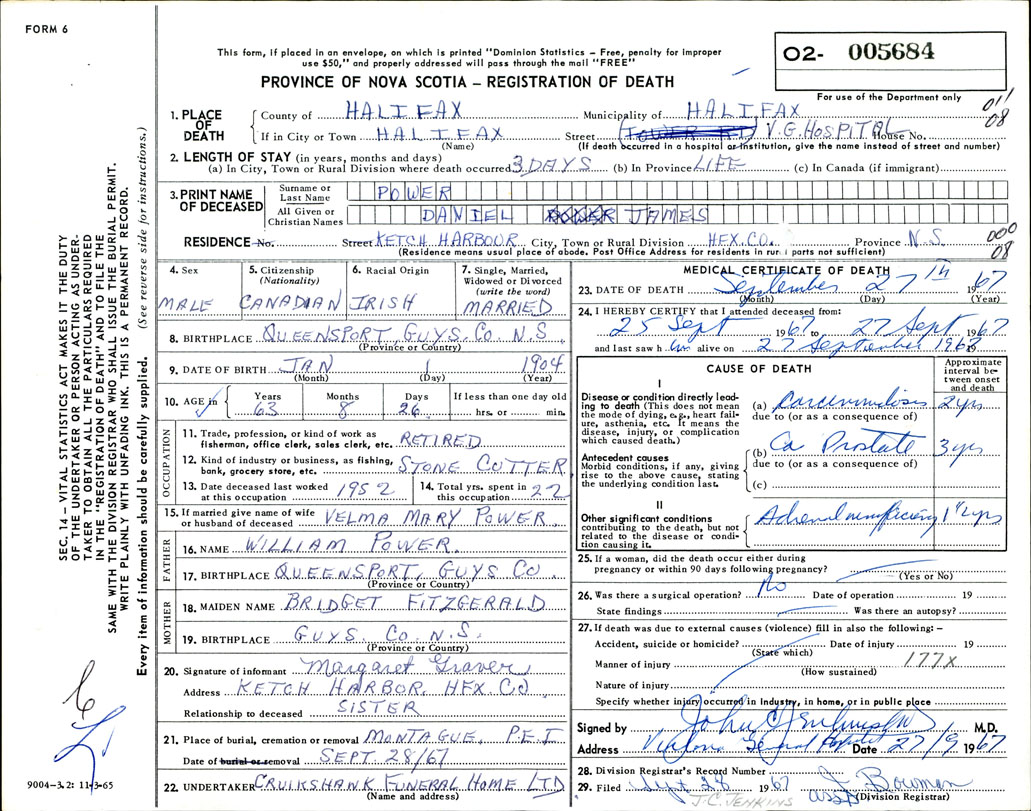 FORM 6
This form, if placed in an envelope, on which is printed "Dominion Statistics – Free, penalty for improper
use $50," and properly addressed will pass through the mail "FREE"
PROVINCE OF NOVA SCOTIA – REGISTRATION OF DEATH
02- 005684
For use of the Department only
011
08
1. PLACE OF DEATH
County of HALIFAX Municipality of HALIFAX
If in City or Town HALIFAX Street V.G. HOSPITAL House No.
(Name) (If death occurred in a hospital or institution, give the name instead of street and number)
2. LENGTH OF STAY (in years, months and days)
(a) In City, Town or Rural Division where death occurred 3 DAYS (b) In Province LIFE (c) In Canada (if immigrant)
3. PRINT NAME OF DECEASED
Surname or Last Name POWER
All Given or Christian Names DANIEL JAMES
RESIDENCE No. Street KETCH HARBOUR City, Town or Rural Division HFX. CO. Province N.S.
000
08
(Residence means usual place of abode. Post Office Address for residents in rural parts not sufficient)
4. Sex 5. Citizenship (Nationality) 6. Racial Origin 7. Single, Married, Widowed or Divorced (write the word)
MALE CANADIAN IRISH MARRIED
8. BIRTHPLACE QUEENSPORT, GUYS. CO. N.S
(Province or Country)
9. DATE OF BIRTH JAN 1 1904
(Month) (Day) (Year)
10. AGE in Years Months Days If less than one day old
63 8 26 hrs. or min.
OCCUPATION
11. Trade, profession, or kind of work as
fisherman, office clerk, sales clerk, etc. RETIRED
12. Kind of industry or business, as fishing,
bank, grocery store, etc. STONE CUTTER
13. Date deceased last worked at this occupation 1952 14. Total yrs. spent in this occupation 22
15. If married give name of wife
or husband of deceased VELMA MARY POWER
FATHER
16. NAME WILLIAM POWER
17. BIRTHPLACE QUEENSPORT, GUYS CO.
(Province or Country)
MOTHER
18. MAIDEN NAME BRIDGET FITZGERALD
19. BIRTHPLACE GUYS. CO. N.S.
(Province or Country)
20. Signature of informant Margaret Graver
Address KETCH HARBOR, HFX. CO.
Relationship to deceased SISTER
21. Place of burial, cremation or removal MONTAGUE, P.E.I
Date of burial or removal SEPT 28/67
22. UNDERTAKER CRUIKSHANK FUNERAL HOME LTD
(Name and address)
MEDICAL CERTIFICATE OF DEATH
23. DATE OF DEATH September 27th 1967
(Month) (Day) (Year)
24. I HEREBY CERTIFY that I attended deceased from:
25 Sept 1967 to 27 Sept 1967
and last saw him alive on 27 September 1967 19
CAUSE OF DEATH
Approximate interval between onset and death
I
Disease or condition directly leading to death (This does not mean the mode of dying, e.g., heart failure, asthenia, etc. It means the disease, injury, or complication which caused death.)
(a) Carcinomatosis 2 yrs
due to (or as a consequence of)
Antecedent causes
Morbid conditions, if any, giving rise to the above cause, stating the underlying condition last.
(b) Ca Prostate 3 yrs
due to (or as a consequence of)
(c)
II
Other significant conditions
contributing to the death, but not related to the disease or condition causing it.
Adrenal insufficiency 1½ yrs
25. If a woman, did the death occur either during
pregnancy or within 90 days following pregnancy?
(Yes or No)
26. Was there a surgical operation? No Date of operation 19
State findings Was there an autopsy?
27. If death was due to external causes (violence) fill in also the following: –
Accident, suicide or homicide? Date of injury 19
(State which)
Manner of injury 177X
(How sustained)
Nature of injury
Specify whether injury occurred in Industry, in home, or in public place
Signed by John M.D.
Address Victoria General Hospital Date 27/9 1967
28. Division Registrar's Record Number
29. Filed Sept 28 1967 J. Bowman
Asst (Division Registrar)
J.C. JENKINS
SEC. 14 – VITAL STATISTICS ACT MAKES IT THE DUTY
OF THE UNDERTAKER OR PERSON ACTING AS UNDER-
TAKER TO OBTAIN ALL THE PARTICULARS REQUIRED
IN THE "REGISTRATION OF DEATH" AND TO FILE THE
SAME WITH THE DIVISION REGISTRAR WHO SHALL ISSUE THE BURIAL PERMIT.
WRITE PLAINLY WITH UNFADING INK. THIS IS A PERMANENT RECORD.
Every item of information should be carefully supplied. (See reverse side for instructions.)
9004-3.2: 11-3-65